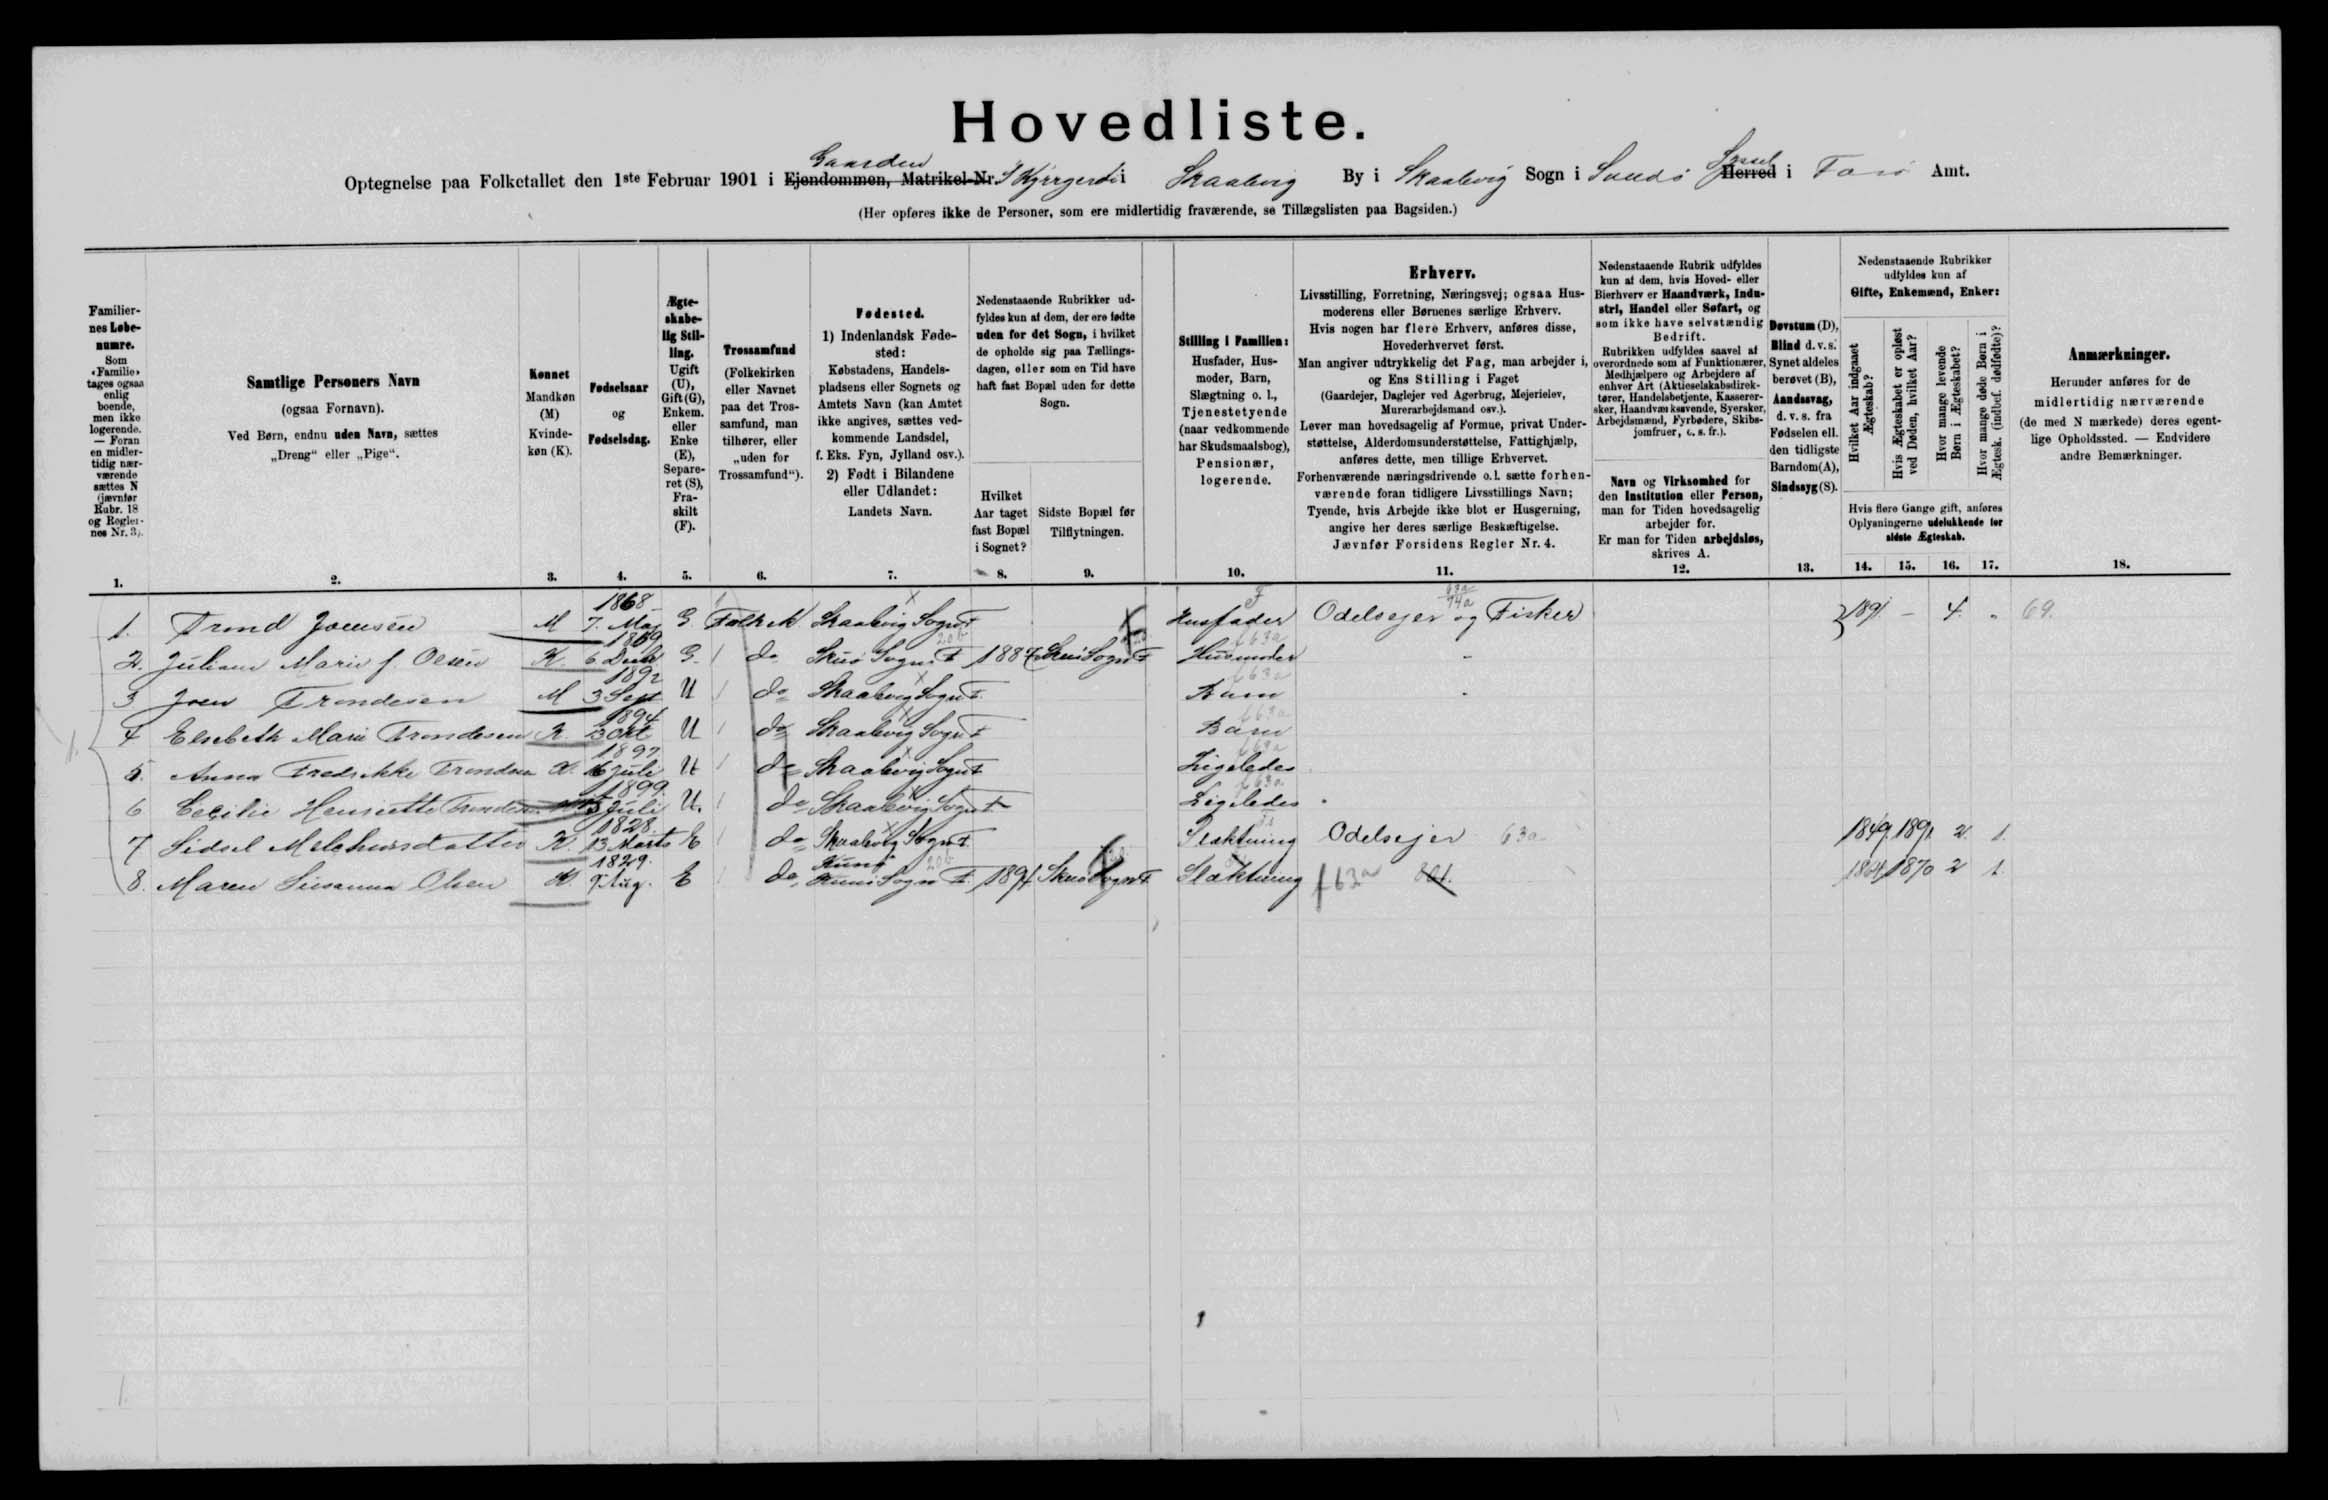 Hovedliste.
Gaarden Syssel
Optegnelse paa Folketallet den 1ste Februar 1901 i Ejendommen, Matrikel-Nr. i Skaalevig By i Skaalevig Sogn i Sandø Herred i Færø Amt.
(Her opføres ikke de Personer, som ere midlertidig fraværende, se Tillægslisten paa Bagsiden.)
Familiernes Løbenumre.
Som «Familie» tages ogsaa enlig boende, men ikke logerende. — Foran en midlertidig nærværende sættes N (jævnfør Rubr. 18 og Regler-nes Nr. 3).
1.
Samtlige Personers Navn
(ogsaa Fornavn).
Ved Børn, endnu uden Navn, sættes „Dreng“ eller „Pige“.
2.
Kønnet
Mandkøn (M) Kvindekøn (K).
3.
Fødselsaar og Fødselsdag.
4.
Ægteskabelig Stilling.
Ugift (U), Gift (G), Enkem. eller Enke (E), Separeret (S), Fraskilt (F).
5.
Trossamfund
(Folkekirken eller Navnet paa det Trossamfund, man tilhører, eller „uden for Trossamfund“).
6.
Fødested.
1) Indenlandsk Fødested:
Købstadens, Handelspladsens eller Sognets og Amtets Navn (kan Amtet ikke angives, sættes vedkommende Landsdel, f. Eks. Fyn, Jylland osv.).
2) Født i Bilandene eller Udlandet:
Landets Navn.
7.
Nedenstaaende Rubrikker udfyldes kun af dem, der ere fødte uden for det Sogn, i hvilket de opholde sig paa Tællingsdagen, eller som en Tid have haft fast Bopæl uden for dette Sogn.
Hvilket Aar taget fast Bopæl i Sognet?
8.
Sidste Bopæl før Tilflytningen.
9.
Stilling i Familien:
Husfader, Husmoder, Barn, Slægtning o. l., Tjenestetyende (naar vedkommende har Skudsmaalsbog), Pensionær, logerende.
10.
Erhverv.
Livsstilling, Forretning, Næringsvej; ogsaa Husmoderens eller Børnenes særlige Erhverv.
Hvis nogen har flere Erhverv, anføres disse, Hovederhvervet først.
Man angiver udtrykkelig det Fag, man arbejder i, og Ens Stilling i Faget
(Gaardejer, Daglejer ved Agerbrug, Mejerielev, Murerarbejdsmand osv.).
Lever man hovedsagelig af Formue, privat Understøttelse, Alderdomsunderstøttelse, Fattighjælp, anføres dette, men tillige Erhvervet.
Forhenværende næringsdrivende o. l. sætte forhenværende foran tidligere Livsstillings Navn;
Tyende, hvis Arbejde ikke blot er Husgerning, angive her deres særlige Beskæftigelse.
Jævnfør Forsidens Regler Nr. 4.
11.
Nedenstaaende Rubrik udfyldes kun af dem, hvis Hoved- eller Bierhverv er Haandværk, Industri, Handel eller Søfart, og som ikke have selvstændig Bedrift.
Rubrikken udfyldes saavel af overordnede som af Funktionærer, Medhjælpere og Arbejdere af enhver Art (Aktieselskabsdirektører, Handelsbetjente, Kasserersker, Haandværkssvende, Syersker, Arbejdsmænd, Fyrbødere, Skibsjomfruer, o. s. fr.).
Navn og Virksomhed for den Institution eller Person, man for Tiden hovedsagelig arbejder for.
Er man for Tiden arbejdsløs, skrives A.
12.
Døvstum (D), Blind d. v. s. Synet aldeles berøvet (B), Aandssvag, d. v. s. fra Fødselen ell. den tidligste Barndom (A), Sindssyg (S).
13.
Nedenstaaende Rubrikker udfyldes kun af Gifte, Enkemænd, Enker:
Hvilket Aar indgaaet Ægteskab?
Hvis Ægteskabet er opløst ved Døden, hvilket Aar?
Hvor mange levende Børn i Ægteskabet?
Hvor mange døde Børn i Ægtesk. (indbef. dødfødte)?
Hvis flere Gange gift, anføres Oplysningerne udelukkende for sidste Ægteskab.
14. 15. 16. 17.
Anmærkninger.
Herunder anføres for de midlertidig nærværende (de med N mærkede) deres egentlige Opholdssted. — Endvidere andre Bemærkninger.
18.
1. Trond Joensen M 1868 7. Maj G Folkek. Skaalevig Sogn F Husfader Odelsejer og Fisker 63a 74a 1891 – 4. " 69.
2. Juliane Marie f. Olsen K. 1869 6 Decbr G. do Skuø Sogn F 20b 1887 Skuø Sogn F Husmoder f 63a
3 Joen Trondesen M 1892 3 Sept U do Skaalevig Sogn F. Barn f 63a
4 Elsebeth Marie Trondesen K. 1894 23 Okt U do Skaalevig Sogn F Barn f 63a
5. Anna Fredrikke Trondsen K. 1897 16 Juli U do Skaalevig Sogn F Ligeledes f 63a
6 Cecilie Henriette 1899 Juli U. do Skaalevig Sogn F Ligeledes f 63a
7 Sidsel Melchiorsdatter K. 1828. 13 Marts E do Skaalevig Sogn F. Slæktning Odelsejer 63a 1849 1891 2. 1.
8. Maren Susanna Olsen K. 1829. 9 Aug. E do Sogn F. 20b 1894 Skuø Sogn F Slæktning f 63a 1870 2 1.